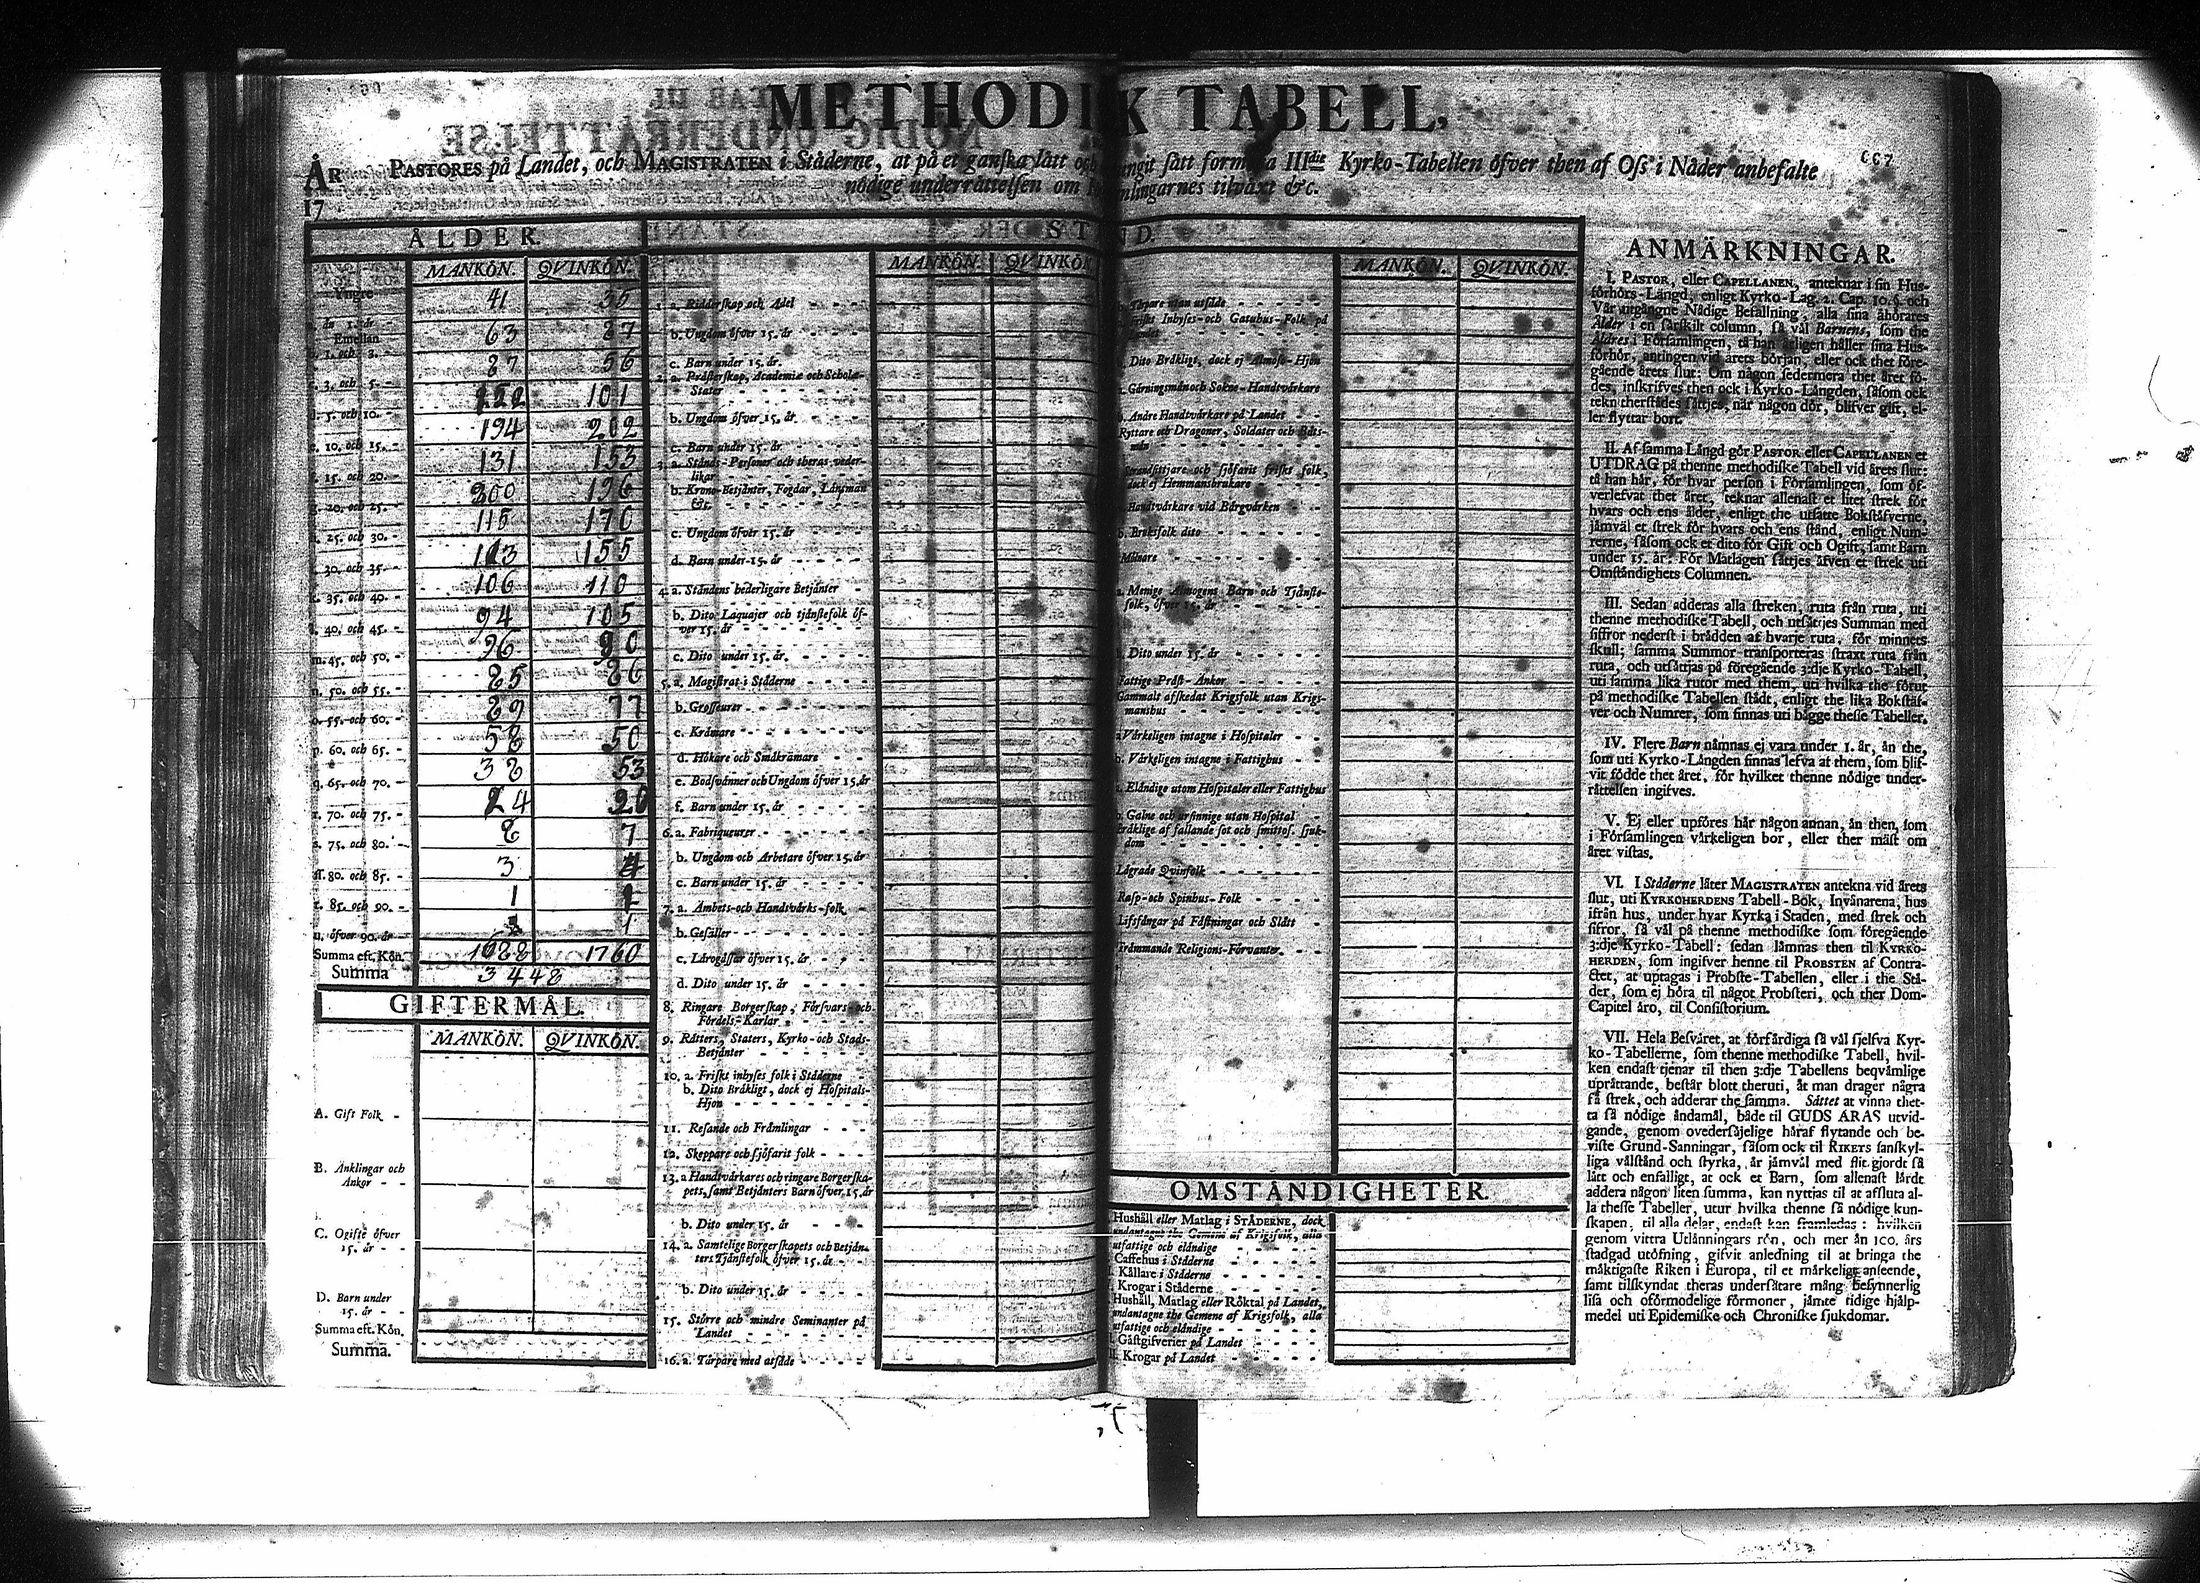 METHODISK TABELL,
ÅR PASTORES på Landet, och MAGISTRATEN i Ståderne, at på et ganska lått och sått formera IIIdie Kyrko-Tabellen öfver then af Oss i Nåder anbefalte
17 nödige underråttelsen om Inbyggarnes tilvåxt &c.
ÅLDER.
MANKÖN. QVINKÖN.
Yngre
a. ån 1. år - 41 35
Emellan
b. 1. och 3. - 63 87
c. 3. och 5. - 87 56
d. 5. och 10. - 101
e. 10. och 15. - 194 202
f. 15. och 20. - 131 153
g. 20. och 25. - 200 196
h. 25. och 30. - 115 170
i. 30. och 35. - 155
k. 35. och 40. - 106 110
l. 40. och 45. - 94 105
m. 45. och 50. - 96 90
n. 50. och 55. - 85 86
o. 55. och 60. - 89 77
p. 60. och 65. - 58 50
q. 65. och 70. - 38 53
r. 70. och 75. - 24 20
s. 75. och 80. - 8 7
ſſ. 80. och 85. - 3 4
t. 85. och 90. - 1
u. öfver 90. år 1
Summa eft. Kön. 1688 1760
Summa 3448
GIFTERMÅL.
MANKÖN. QVINKÖN.
A. Gift Folk -
B. Änklingar och
Änkor - -
C. Ogifte öfver
15. år - -
D. Barn under
15. år - -
Summa eft. Kön.
Summa.
STÅND.
MANKÖN. QVINKÖN.
1. a. Ridderskap och Adel
b. Ungdom öfver 15. år
c. Barn under 15. år
2. a. Pråsterskap, Academiæ och Scholæ-
Stater
b. Ungdom öfver 15. år
c. Barn under 15. år
3. a. Stånds-Personer och theras veder-
likar
b. Krono-Betjånter, Fogdar, Lånsmån
&c.
c. Ungdom öfver 15. år
d. Barn under 15. år
4. a. Ståndens hederligare Betjånter
b. Dito Laquajer och tjånstefolk öf-
ver 15. år
c. Dito under 15. år.
5. a. Magistrat i Ståderne
b. Grosseurer
c. Kråmare
d. Hökare och Småkråmare
e. Bodsvånner och Ungdom öfver 15. år
f. Barn under 15. år
6. a. Fabriqueurer
b. Ungdom och Arbetare öfver 15. år
c. Barn under 15. år
7. a. Åmbets-och Handtvårks-folk
b. Gesåller
c. Lårogåssar öfver 15. år
d. Dito under 15. år
8. Ringare Borgerskap, Försvars-och
Fördels-Karlar
9. Råtters, Staters, Kyrko-och Stads-
Betjånter
10. a. Friskt inhyses folk i Ståderne
b. Dito Bråkligt, dock ej Hospitals-
Hjon
11. Resande och Fråmlingar
12. Skeppare och sjöfarit folk
13. a Handtvårkares och ringare Borgerska-
pets, samt Betjånters Barn öfver 15. år
b. Dito under 15. år
14. a. Samtelige Borgerskapets och Betjån-
ters Tjånstefolk öfver 15. år
b. Dito under 15. år
15. Större och mindre Seminanter på
Landet
16. a. Tårpare med utsåde
MANKÖN. QVINKÖN.
Tårpare utan utsåde
Friskt Inhyses-och Gatuhus-Folk på
Landet
Dito Bråkligt, dock ej Almoso-Hjon
Gårningsmån och Sokne-Handtvårkare
Andre Handtvårkare på Landet
Ryttare och Dragoner, Soldater och Båts-
mån
Strandsittjare och sjöfarit friskt folk,
dock ej Hemmansbrukare
Handtvårkare vid Bårgvårken
b. Bruksfolk dito
Mölnare
a. Menige Almogens Barn och Tjånste-
folk, öfver 15. år
Dito under 15. år
Fattige Pråst-Ånkor
Gammalt afskedat Krigsfolk utan Krigs-
manshus
a Vårkeligen intagne i Hospitaler
b. Vårkeligen intagne i Fattighus
Elåndige utom Hospitaler eller Fattighus
Galne och ursinnige utan Hospital
Bråklige af fallande sot och smittos. sjuk-
dom
Lågrade Qvinfolk
Rasp-och Spinhus-Folk
Lifsfångar på Fåstningar och Slått
Fråmmande Religions-Förvanter.
OMSTÅNDIGHETER.
Hushåll eller Matlag i STÅDERNE, dock
undantagne the Gemene af Krigsfolk, alla
utfattige och elåndige
Caffehus i Ståderne
Kållare i Ståderne
Krogar i Ståderne
Hushåll, Matlag eller Röktal på Landet,
undantagne the Gemene af Krigsfolk, alla
utfattige och elåndige
Gåstgifverier på Landet
Krogar på Landet
ANMÄRKNINGAR.
I. PASTOR, eller CAPELLANEN, anteknar i sin Hus-
förhörs-Långd, enligt Kyrko-Lag. 2. Cap. 10. §. och
Vår utgångne Nådige Befallning, alla sina åhörares
Ålder i en sårskilt column, så vål Barnens, som the
Åldres i Församlingen, tå han årligen håller sina Hus-
förhör, antingen vid årets början, eller ock thet före-
gående årets slut: Om någon sedermera thet året fö-
des, inskrifves then ock i Kyrko-Långden, såsom ock
tekn therstådes såttjes, når någon dör, blifver gift, el-
ler flyttar bort.
II. Af samma Långd gör PASTOR eller CAPELLANEN et
UTDRAG på thenne methodiske Tabell vid årets slut:
tå han hår, för hvar person i Församlingen, som öf-
verlefvat thet året, teknar allenast et litet strek för
hvars och ens ålder, enligt the utsatte Bokståfverne,
jåmvål et strek för hvars och ens stånd, enligt Num-
rerne, såsom ock et dito för Gift och Ogift, samt Barn
under 15. år: För Matlagen såttjes åfven et strek uti
Omståndighets Columnen.
III. Sedan adderas alla streken, ruta från ruta, uti
thenne methodiske Tabell, och utsåttjes Summan med
siffror nederst i brådden af hvarje ruta, för minnets
skull; samma Summor transporteras straxt ruta från
ruta, och utsåttjas på föregående 3:dje Kyrko-Tabell,
uti samma lika rutor med them, uti hvilka the förut
på methodiske Tabellen stådt, enligt the lika Bokståf-
ver och Numrer, som finnas uti bågge thesse Tabeller.
IV. Flere Barn nåmnas ej vara under 1. år, ån the,
som uti Kyrko-Långden finnas lefva af them, som blif-
vit födde thet året, för hvilket thenne nödige under-
råttelsen ingifves.
V. Ej eller upföres hår någon annan, ån then, som
i Församlingen vårkeligen bor, eller ther måst om
året vistas.
VI. I Ståderne låter MAGISTRATEN antekna vid årets
slut, uti KYRKOHERDENS Tabell-Bok, Invånarena, hus
ifrån hus, under hvar Kyrka i Staden, med strek och
sifror, så vål på thenne methodiske som föregående
3:dje Kyrko-Tabell: sedan låmnas then til KYRKO-
HERDEN, som ingifver henne til PROBSTEN af Contra-
ctet, at uptagas i Probste-Tabellen, eller i the Stå-
der, som ej höra til något Probsteri, och ther Dom-
Capitel åro, til Consistorium.
VII. Hela Besvåret, at förfårdiga så vål sjelfva Kyr-
ko-Tabellerne, som thenne methodiske Tabell, hvil-
ken endast tjenar til then 3:dje Tabellens beqvåmlige
upråttande, består blott theruti, åt man drager några
få strek, och adderar the samma. Såttet at vinna thet-
ta så nödige åndamål, både til GUDS ÄRAS utvid-
gande, genom ovedersåjelige håraf flytande och be-
viste Grund-Sanningar, såsom ock til RIKETS sanskyl-
liga vålstånd och styrka, år jåmvål med flit gjordt så
lått och enfalligt, at ock et Barn, som allenast lårdt
addera någon liten summa, kan nyttjas til at afsluta al-
la thesse Tabeller, utur hvilka thenne så nödige kun-
skapen, til alla delar, endast kan framledas: hvilken
genom vittra Utlånningars rön, och mer ån 100. års
stadgad utöfning, gifvit anledning til at bringa the
måktigaste Riken i Europa, til et mårkeligt anseende,
samt tilskyndat theras undersåtare mång besynnerlig
lisa och oförmodelige förmoner, jåmte tidige hjålp-
medel uti Epidemiske och Chroniske sjukdomar.